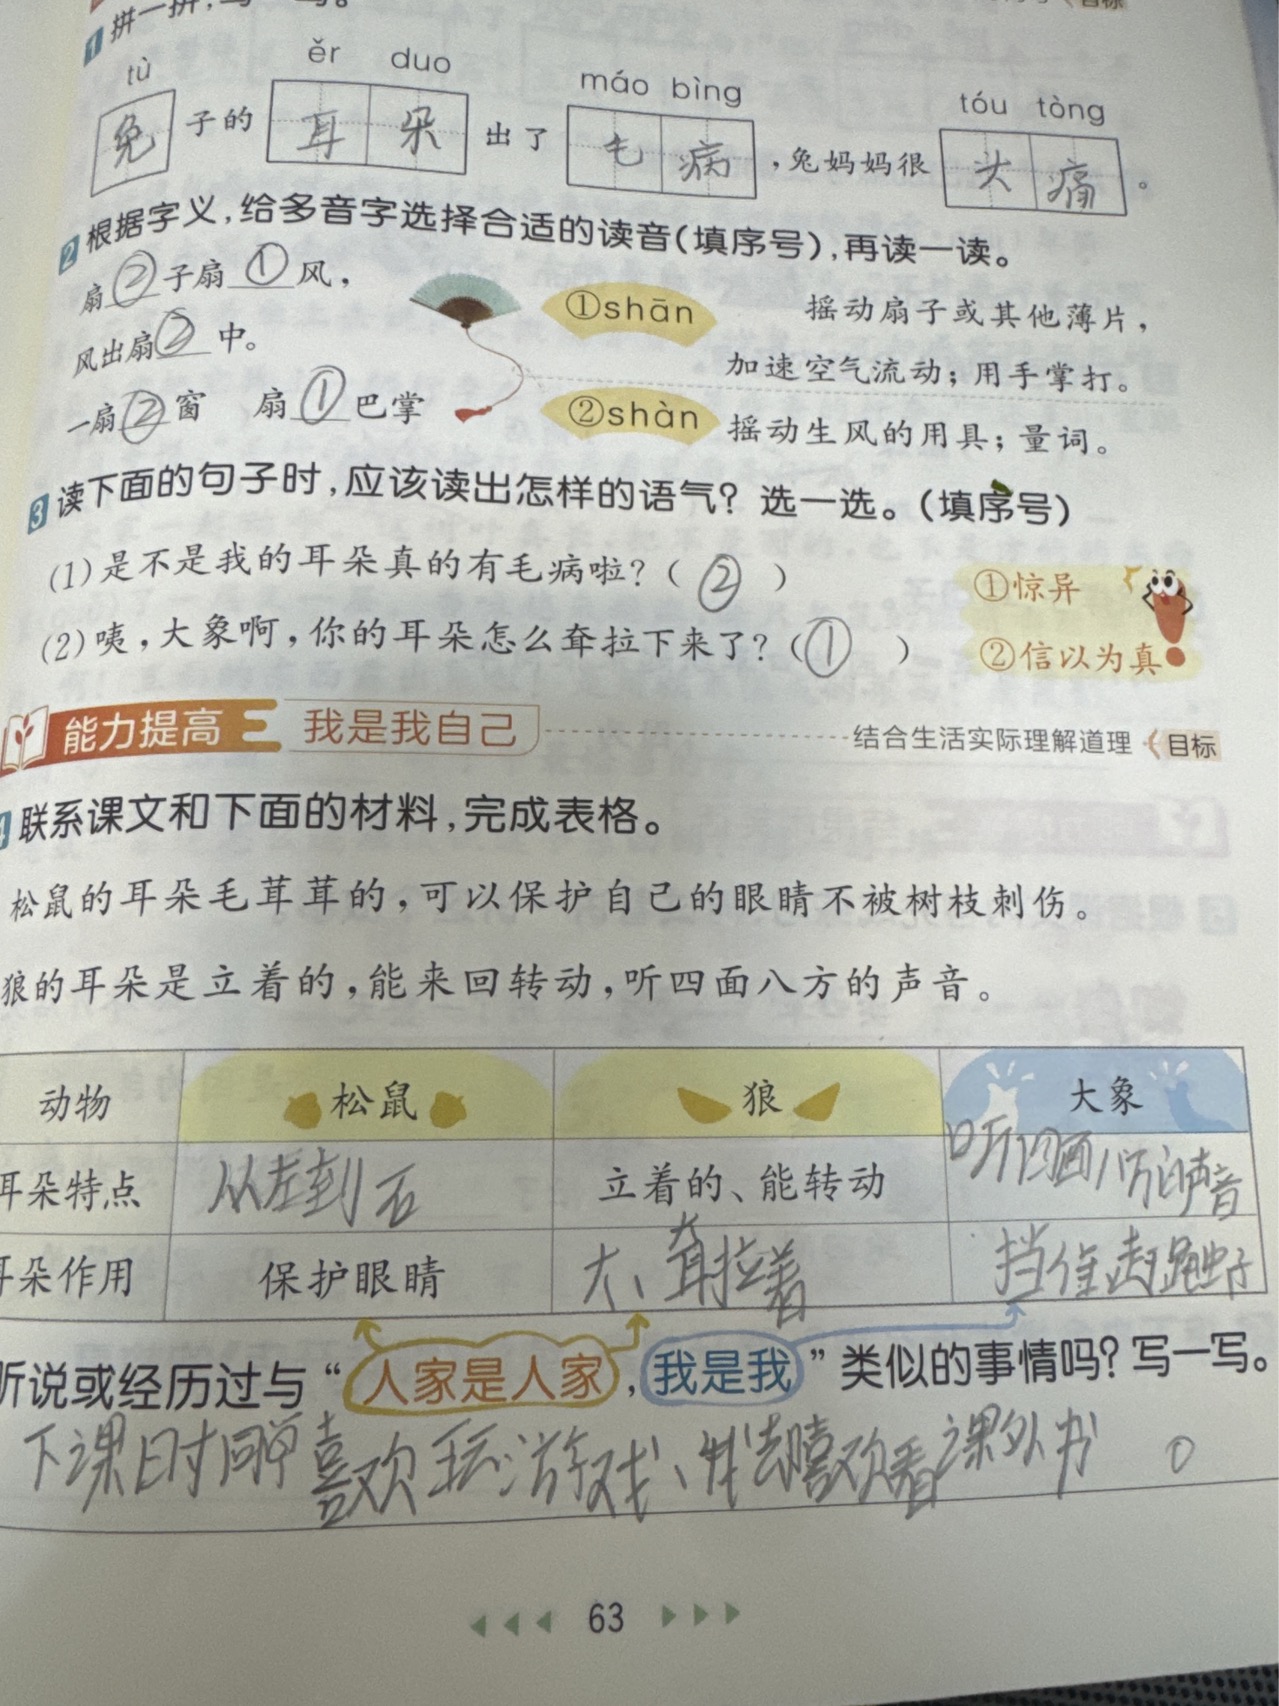 1 拼一拼，写一写。
目标
tù ěr duo máo bìng tóu tòng
兔子的耳朵出了毛病，兔妈妈很头痛。
2 根据字义，给多音字选择合适的读音（填序号），再读一读。
扇②子扇①风，
风出扇②中。
一扇②窗 扇①巴掌
①shān 摇动扇子或其他薄片，
加速空气流动；用手掌打。
②shàn 摇动生风的用具；量词。
3 读下面的句子时，应该读出怎样的语气？选一选。（填序号）
(1)是不是我的耳朵真的有毛病啦？（②）
(2)咦，大象啊，你的耳朵怎么耷拉下来了？（①）
①惊异
②信以为真
能力提高 我是我自己 结合生活实际理解道理 目标
4 联系课文和下面的材料，完成表格。
松鼠的耳朵毛茸茸的，可以保护自己的眼睛不被树枝刺伤。
狼的耳朵是立着的，能来回转动，听四面八方的声音。
动物 松鼠 狼 大象
耳朵特点 从左到右 立着的、能转动 听四面八方的声音
耳朵作用 保护眼睛 大、耷拉着 挡住赶跑虫子
听说或经历过与“人家是人家，我是我”类似的事情吗？写一写。
下课时同学喜欢玩游戏、我去喜欢看课外书。
63